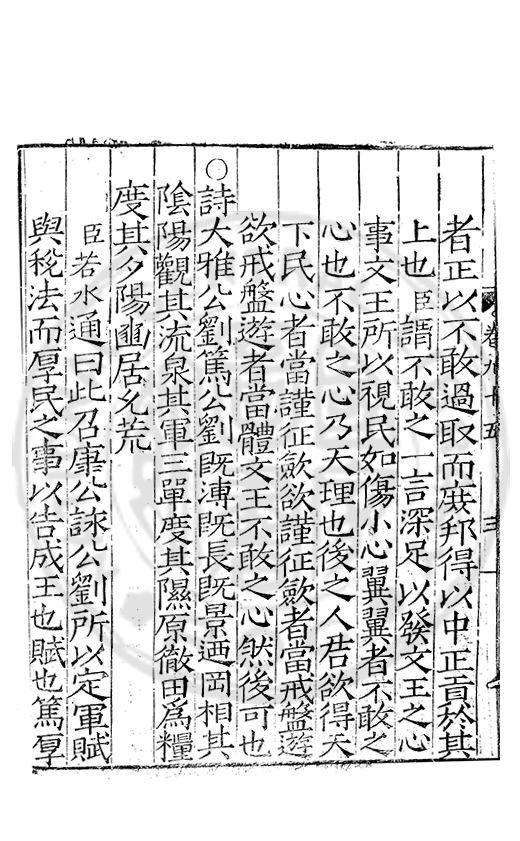 卷九十五 三
者正以不敢過取而庻邦得以中正貢於其
上也臣謂不敢之一言深足以發文王之心
事文王所以視民如傷小心翼翼者不敢之
心也不敢之心乃天理也後之人君欲得天
下民心者當謹征歛欲謹征歛者當戒盤遊
欲戒盤遊者當體文王不敢之心然後可也
○詩大雅公劉篤公劉旣溥旣長旣景迺岡相其
隂陽觀其流泉其軍三單度其隰原徹田爲糧
度其夕陽豳居允荒
臣若水通曰此召康公詠公劉所以定軍賦
與稅法而厚民之事以告成王也賦也篤厚